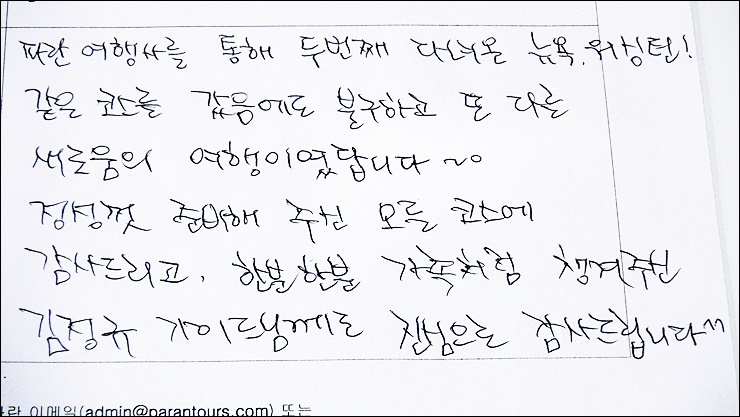 파란 여행사를 통해 두번째 다녀온 뉴욕, 워싱턴!
같은 코스를 갔음에도 불구하고 또 다른
새로움의 여행이였답니다 ~o
정성껏 준비해 주신 모든 코스에
감사드리고, 한분한분 가족처럼 챙겨주신
김정규 가이드님께도 진심으로 감사드립니다^^
이메일(admin@parantours.com) 또는